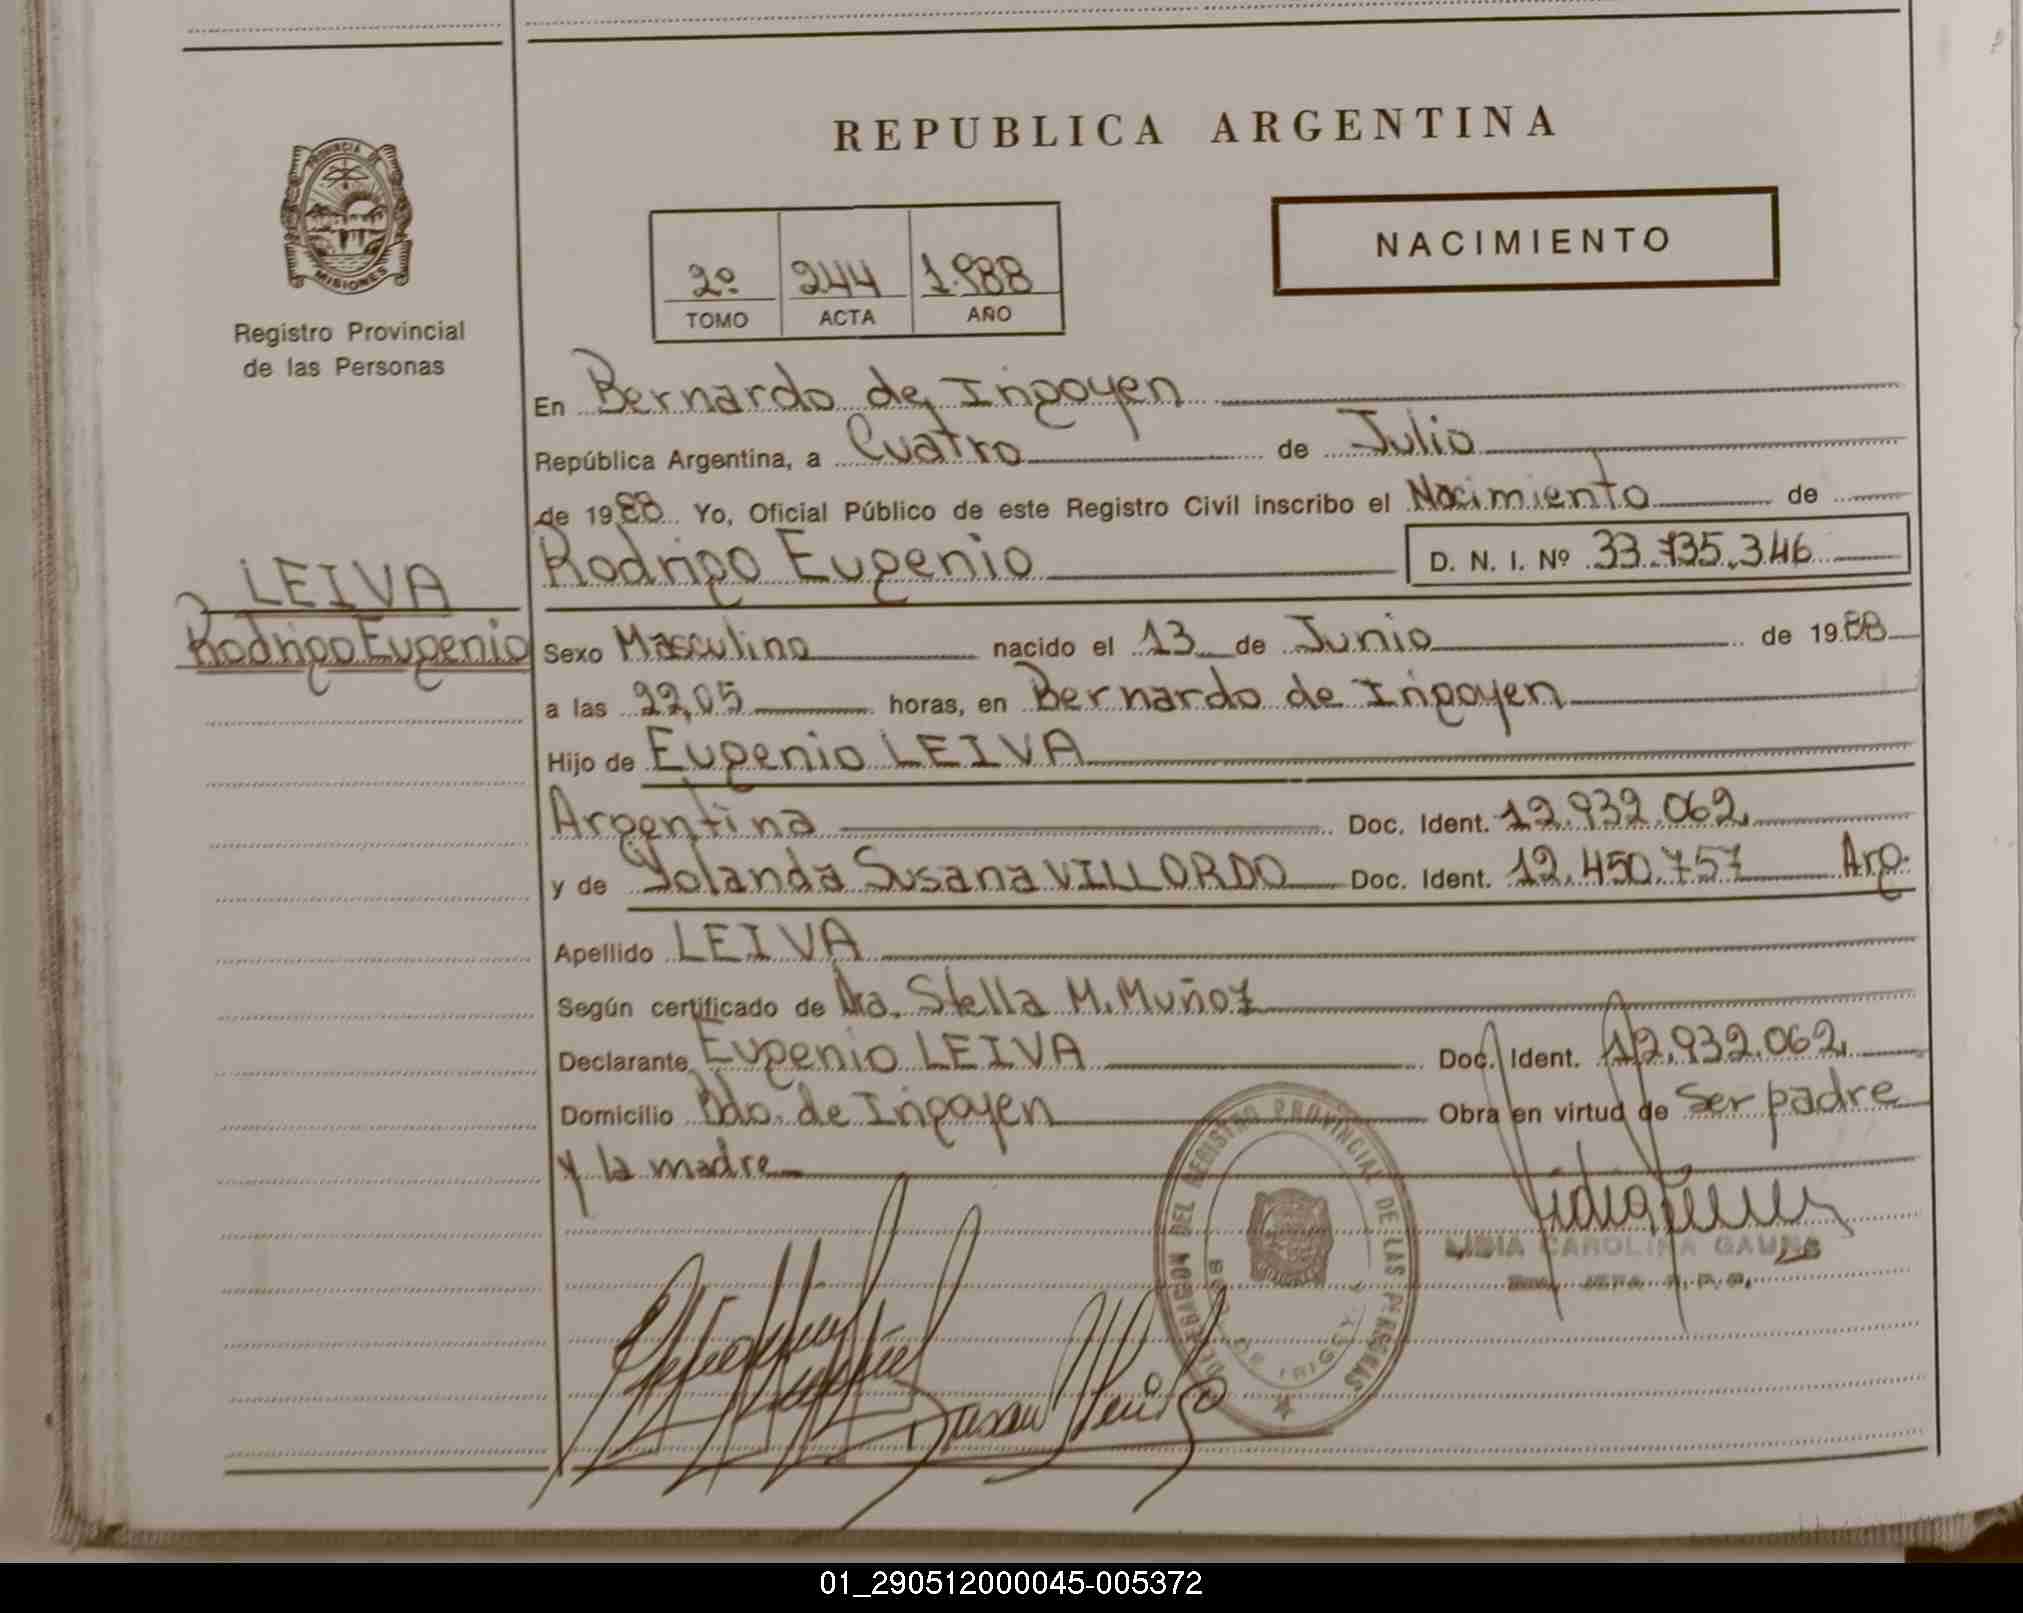 REPUBLICA ARGENTINA
PROVINCIA DE
MISIONES
Registro Provincial
de las Personas
2º 244 1.988
TOMO ACTA AÑO
NACIMIENTO
En Bernardo de Irigoyen
República Argentina, a Cuatro de Julio
de 1988 Yo, Oficial Público de este Registro Civil inscribo el Nacimiento de
Rodrigo Eugenio D. N. I. Nº 33.735.346
LEIVA
Rodrigo Eugenio
Sexo Masculino nacido el 13 de Junio de 1988
a las 22,05 horas, en Bernardo de Irigoyen
Hijo de Eugenio LEIVA
Argentina Doc. Ident. 12.932.062
y de Yolanda Susana VILLORDO Doc. Ident. 12.450.757 Arg.
Apellido LEIVA
Según certificado de Dra. Stella M. Muñoz
Declarante Eugenio LEIVA Doc. Ident. 12.932.062
Domicilio Bdo. de Irigoyen Obra en virtud de Ser padre
y la madre
DELEGACION DEL REGISTRO PROVINCIAL DE LAS PERSONAS
DE IRIGOYEN
LIDIA CAROLINA GAUNA
JEFA R. P. P.
01_290512000045-005372